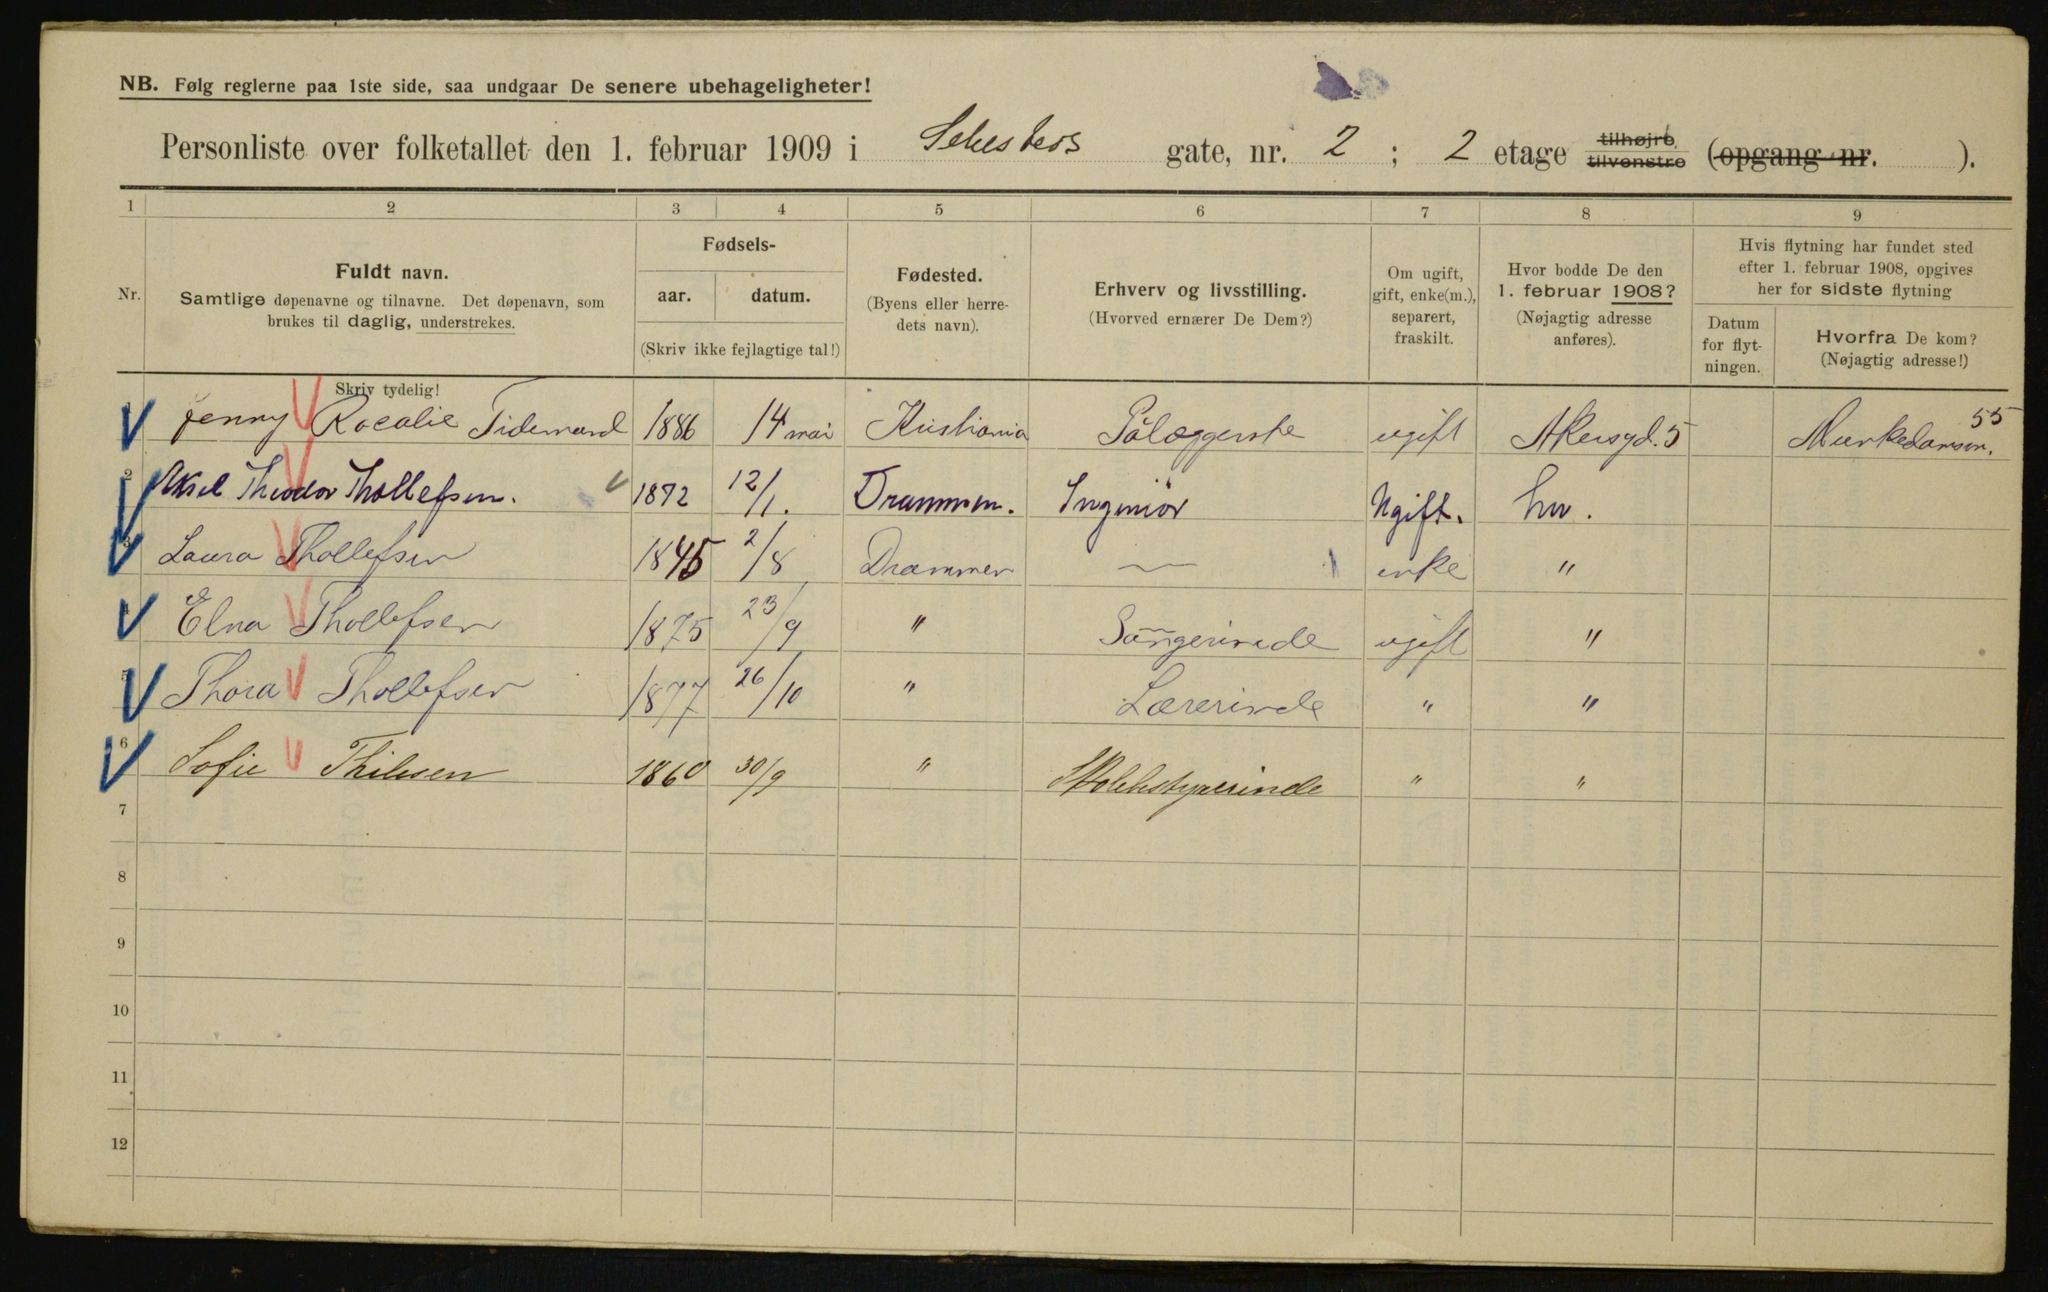 NB. Følg reglerne paa 1ste side, saa undgaar De senere ubehageligheter!
Personliste over folketallet den 1. februar 1909 i Sehesteds gate, nr. 2 ; 2 etage tilhøjre tilvenstre (opgang nr. ).
1 2 3 4 5 6 7 8 9
Nr.
Fuldt navn.
Samtlige døpenavne og tilnavne. Det døpenavn, som
brukes til daglig, understrekes.
Skriv tydelig!
Fødsels-
aar. datum.
(Skriv ikke fejlagtige tal!)
Fødested.
(Byens eller herre-
dets navn).
Erhverv og livsstilling.
(Hvorved ernærer De Dem?)
Om ugift,
gift, enke(m.),
separert,
fraskilt.
Hvor bodde De den
1. februar 1908?
(Nøjagtig adresse
anføres).
Hvis flytning har fundet sted
efter 1. februar 1908, opgives
her for sidste flytning
Datum
for flyt-
ningen.
Hvorfra De kom?
(Nøjagtig adresse!)
1 Jenny Rocalie Tidemand 1886 14 mai Kristiania Pålæggerske ugift Akersgd. 5 Munkedamsv. 55
2 Aksel Theodor Thollefsen. 1872 12/1. Drammen. Ingeniør Ugift. her.
3 Laura Thollefsen 1845 2/8 Drammen — enke "
4 Elna Thollefsen 1875 23/9 " Sangerinde ugift "
5 Thora Thollefsen 1877 26/10 " Lærerinde " "
6 Sofie Thilesen 1860 30/9 " Skolebestyrerinde " "
7
8
9
10
11
12